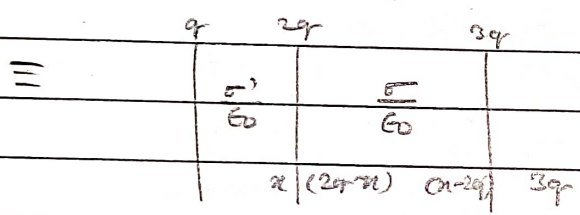 q 2q 3q
≡ σ'/ε0 σ/ε0
x (2q-x) (x-2q) 3q